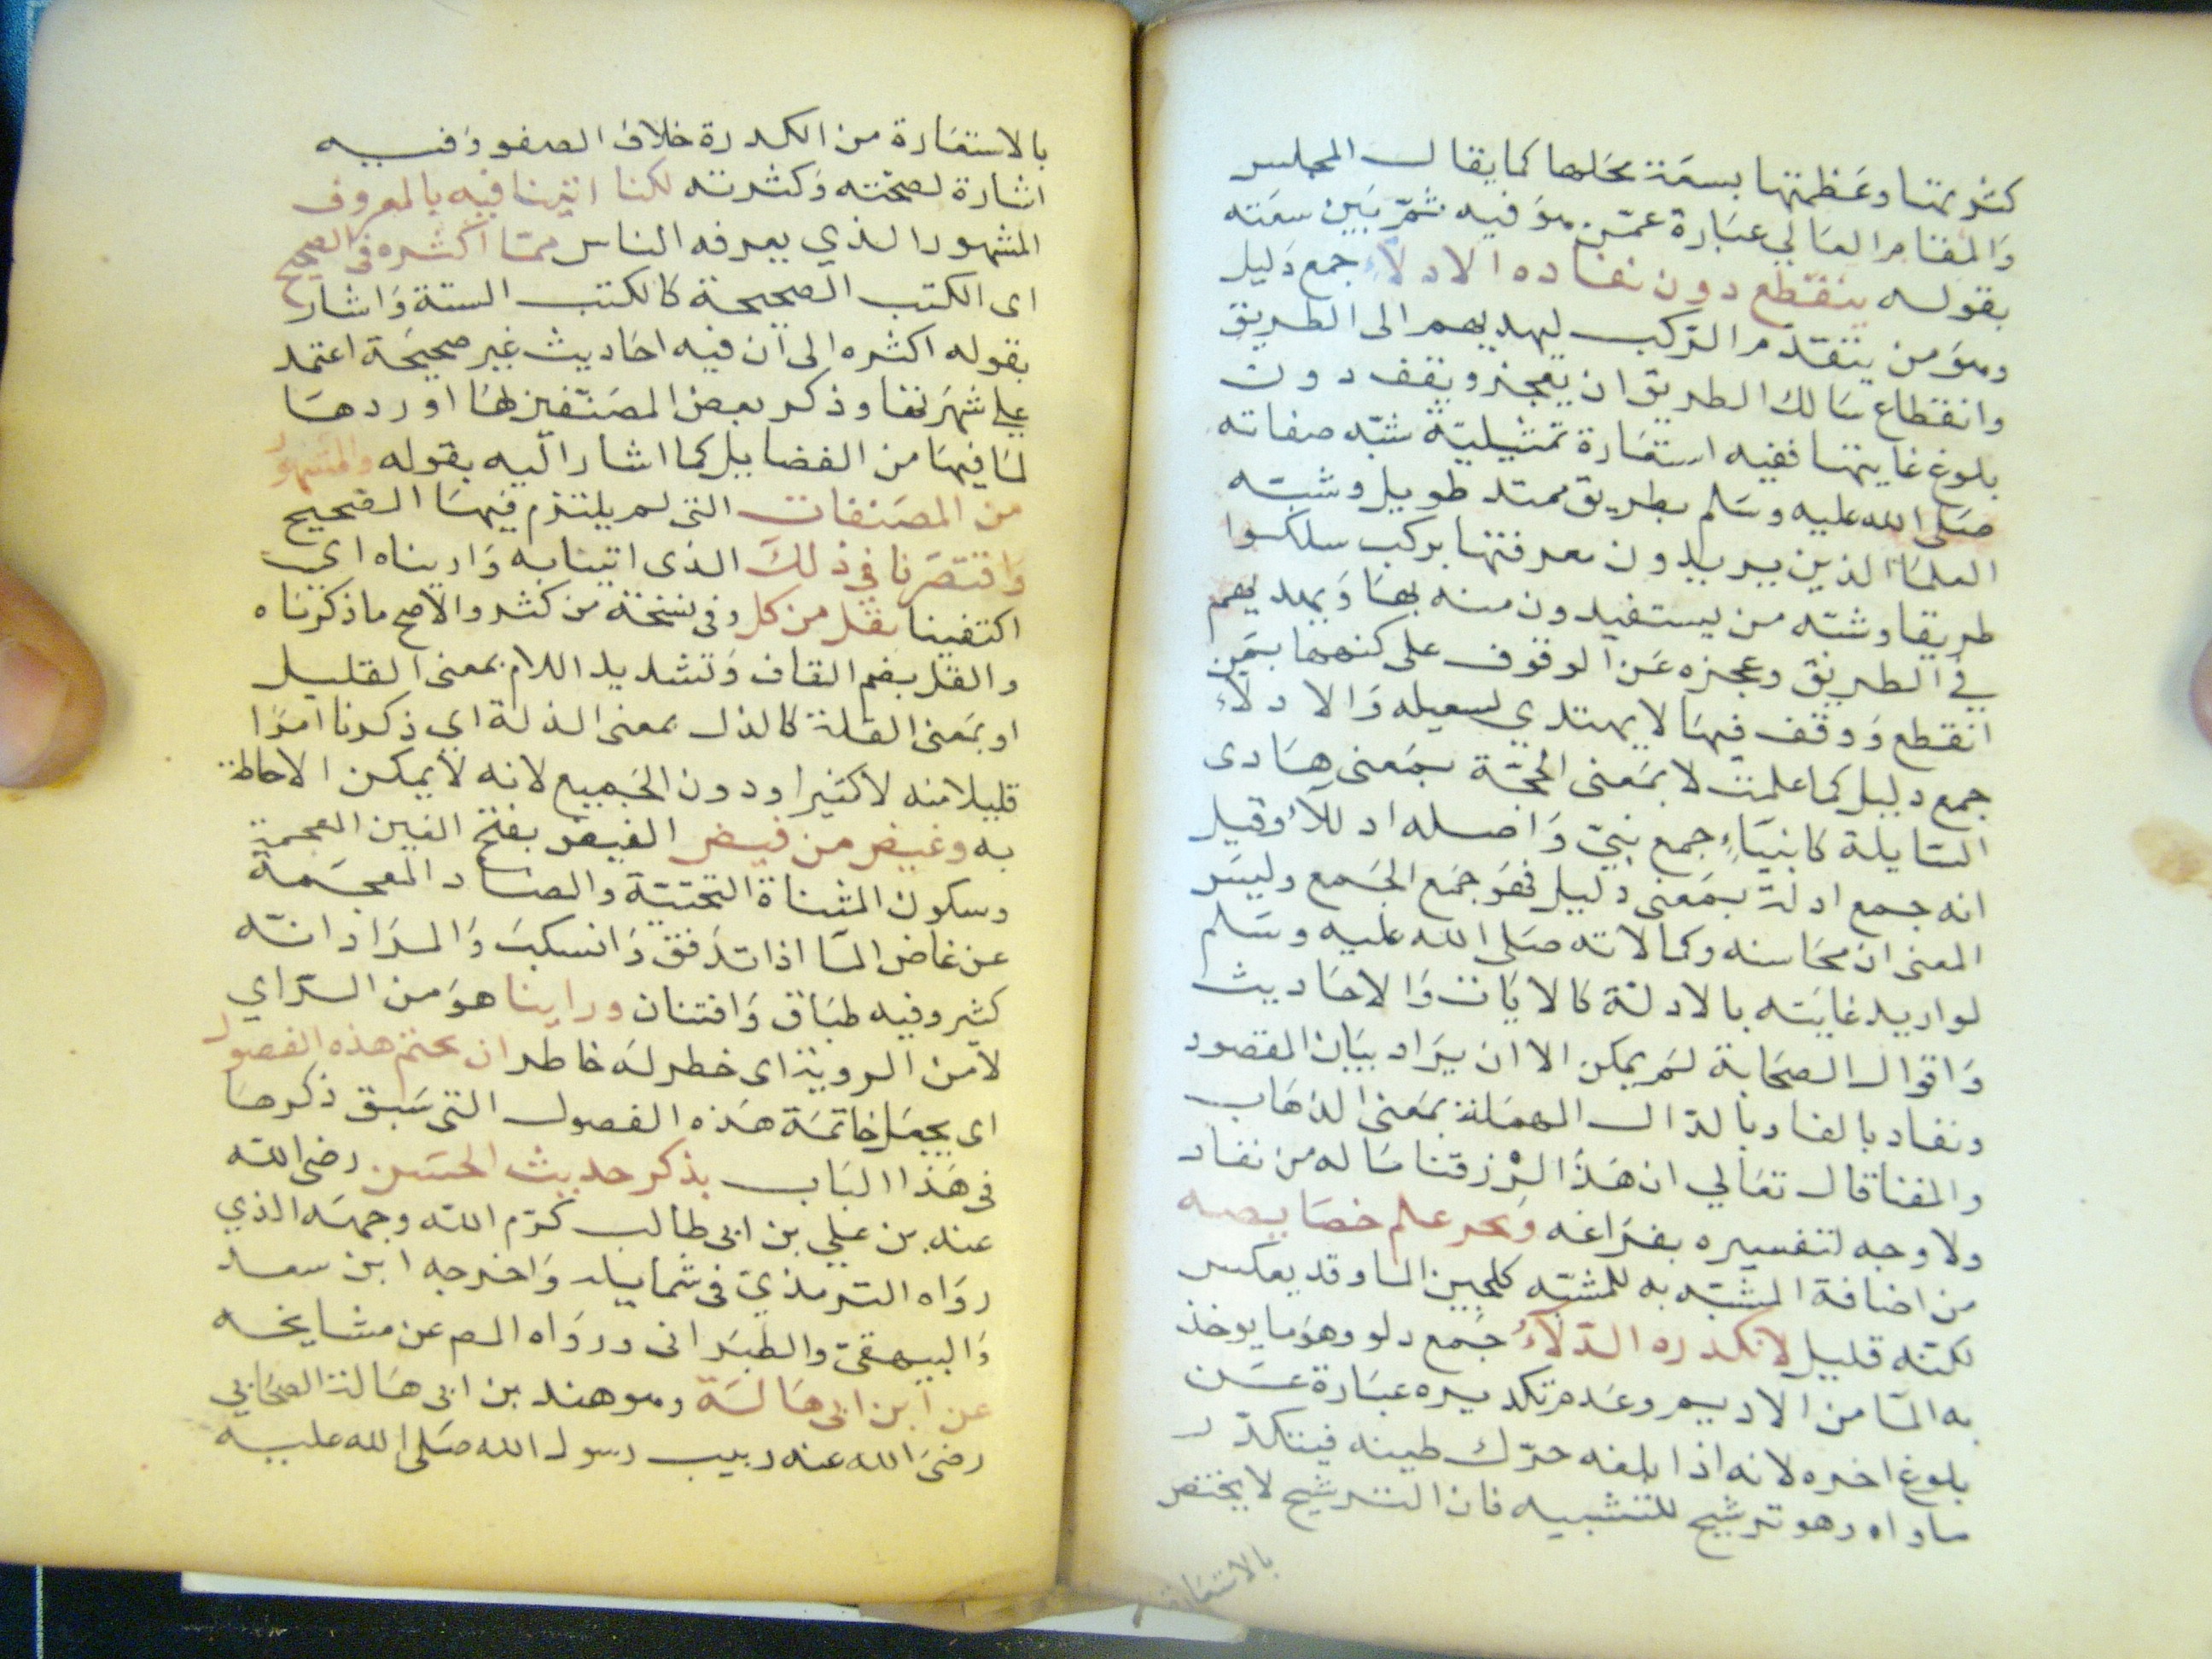 كثرتها وعظمتها بسعة محلها كما يقال المجلس
والمقام العالي عبارة عمن هو فيه ثم بين سعته
بقوله ينقطع دون نفاده الادلاء جمع دليل
وهو من يتقدم الركب ليهديهم الى الطريق
وانقطاع سالك الطريق ان يعجز ويقف دون
بلوغ غايتها ففيه استعارة تمثيلية شبه صفاته
صلى الله عليه وسلم بطريق ممتد طويل وشبه
العلماء الذين يريدون معرفتها بركب سلكوا
طريقا وشبه من يستفيدون منه بها ويهديهم
في الطريق وعجزه عن الوقوف على كنهها بمن
انقطع ووقف فيها لا يهتدي لسبيله والادلاء
جمع دليل كما علمت لا بمعنى الحجة بمعنى هادى
السايلة كانبياء جمع نبي واصله ادللاء وقيل
انه جمع ادلة بمعنى دليل فهو جمع الجمع وليس
المعنى ان محاسنه وكمالاته صلى الله عليه وسلم
لو اريد غايته بالادلة كالايات والاحاديث
واقوال الصحابة لم يمكن الا ان يراد بيان المقصود
ونفاد بالفا وبالدال المهملة بمعنى الذهاب
والفنا قال تعالي ان هذا لرزقنا ماله من نفاد
ولا وجه لتفسيره بفراغه وبحر علم خصايصه
من اضافة المشبه به للمشبه كلجين الما وقد يعكس
لكنه قليل لا تكدره الدلاء جمع دلو وهو ما يوخذ
به الما من الاديم وعدم تكديره عبارة عن
بلوغ اخره لانه اذا بلغه حرك طينه فيتكدر
ماواه وهو ترشيح للتشبيه فان الترشيح لا يختص
بالاستعارة
بالاستعارة من الكدرة خلاف الصفو وفيه
اشارة لصحته وكثرته لكنا اتينا فيه بالمعروف
المشهور الذي يعرفه الناس مما اكثره في الصحيح
اى الكتب الصحيحة كالكتب الستة واشار
بقوله اكثره الى ان فيه احاديث غير صحيحة اعتمد
على شهرتها وذكر بعض المصنفين لها اوردها
لما فيها من الفضايل كما اشار اليه بقوله والمشهور
من المصنفات التي لم يلتزم فيها الصحيح
واقتصرنا في ذلك الذى اتينا به واريناه اي
اكتفينا بقل من كل وفي نسخة من كثر والاصح ما ذكرناه
والقل بضم القاف وتشديد اللام بمعنى القليل
او بمعنى القلة كالذل بمعنى الذلة اى ذكرنا امرا
قليلا منه لا كثيرا ودون الجميع لانه لا يمكن الاحاطة
به وغيض من فيض الغيض بفتح الغين المعجمة
وسكون المثناة التحتية والضاد المعجمة
عن غاض الما اذا تدفق وانسكب والمراد انه
كثير وفيه طباق وافتنان وراينا هو من الراي
لا من الروية اى خطر له خاطر ان نختم هذه الفصول
اى يجعل خاتمة هذه الفصول التي سبق ذكرها
فى هذا الباب بذكر حديث الحسن رضى الله
عنه بن علي بن ابى طالب كرم الله وجهه الذي
رواه الترمذي فى شمايله واخرجه ابن سعد
والبيهقى والطبرانى ورواه المص عن مشايخه
عن ابن ابى هالة وهو هند بن ابى هالة الصحابي
رضى الله عنه ربيب رسول الله صلى الله عليه